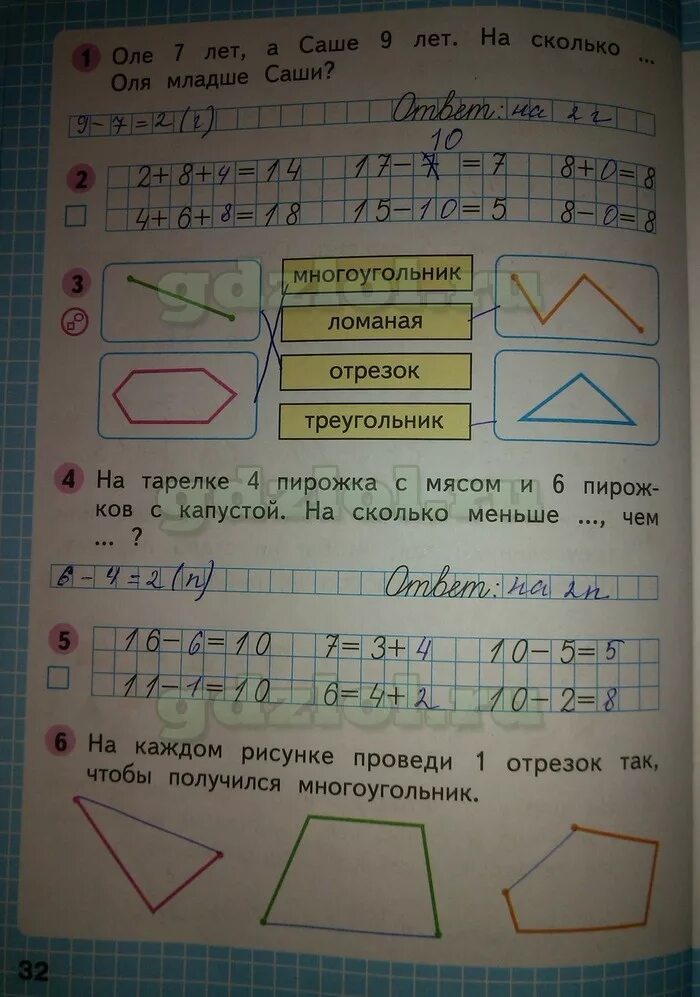 1 Оле 7 лет, а Саше 9 лет. На сколько ...
Оля младше Саши?
9-7=2(г) Ответ: на 2 г
10
2 2+8+4=14 17-7=7 8+0=8
4+6+8=18 15-10=5 8-0=8
3 многоугольник
ломаная
отрезок
треугольник
gdzlol.ru
4 На тарелке 4 пирожка с мясом и 6 пирож-
ков с капустой. На сколько меньше ..., чем
... ?
gdzlol.ru
6-4=2(п) Ответ: на 2п
5 16-6=10 7=3+4 10-5=5
11-1=10 6=4+2 10-2=8
gdzlol.ru
6 На каждом рисунке проведи 1 отрезок так,
чтобы получился многоугольник.
32